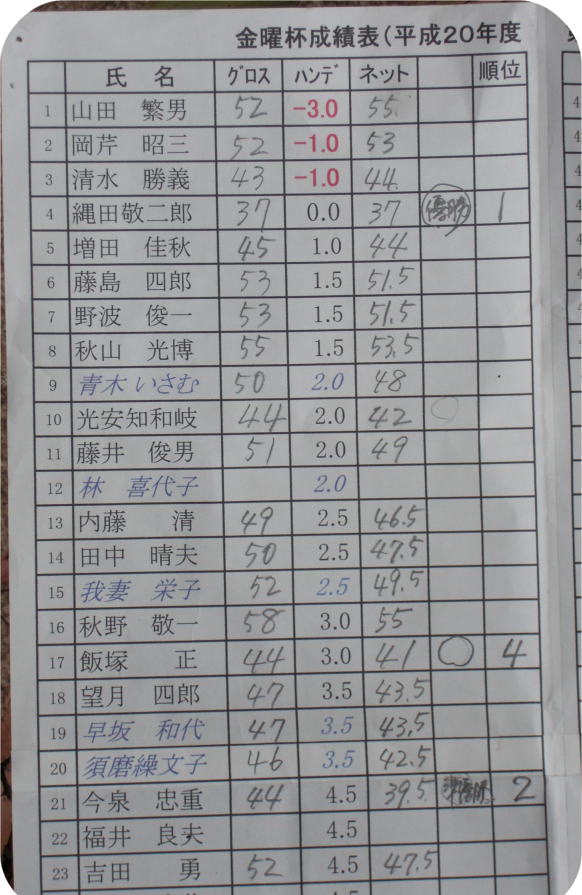 金曜杯成績表(平成20年度
氏 名 グロス ハンデ ネット 順位
1 山田 繁男 52 -3.0 55
2 岡芹 昭三 52 -1.0 53
3 清水 勝義 43 -1.0 44
4 縄田敬二郎 37 0.0 37 優勝 1
5 増田 佳秋 45 1.0 44
6 藤島 四郎 53 1.5 51.5
7 野波 俊一 53 1.5 51.5
8 秋山 光博 55 1.5 53.5
9 青木いさむ 50 2.0 48
10 光安知和岐 44 2.0 42
11 藤井 俊男 51 2.0 49
12 林 喜代子 2.0
13 内藤 清 49 2.5 46.5
14 田中 晴夫 50 2.5 47.5
15 我妻 栄子 52 2.5 49.5
16 秋野 敬一 58 3.0 55
17 飯塚 正 44 3.0 41 ○ 4
18 望月 四郎 47 3.5 43.5
19 早坂 和代 47 3.5 43.5
20 須磨繰文子 46 3.5 42.5
21 今泉 忠重 44 4.5 39.5 準優勝 2
22 福井 良夫 4.5
23 吉田 勇 52 4.5 47.5